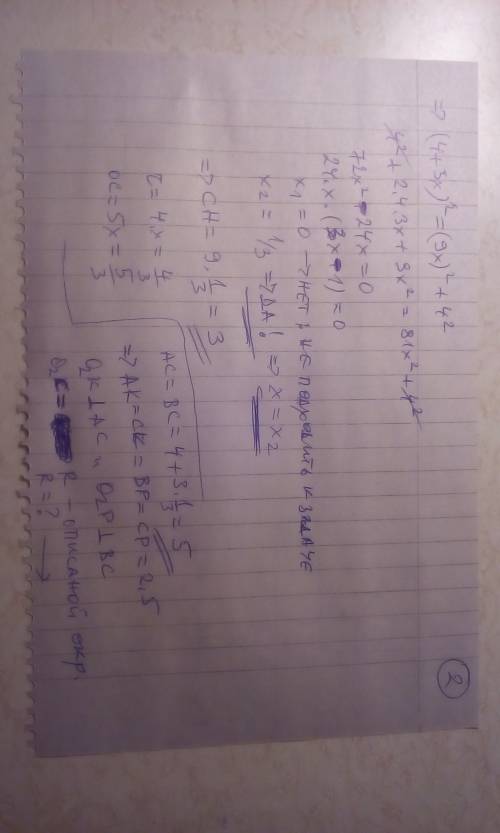 2
⇒ (4+3x)² = (9x)² + 4²
4² + 2.4.3x + 9x² = 81x² + 4²
72x² - 24x = 0
24.x.(3x-1) = 0
x₁ = 0 → НЕТ, НЕ ПОДХОДИТЬ К ЗАДАЧЕ
x₂ = 1/3 ⇒ ДА! ⇒ x = x₂
⇒ CH = 9.1/3 = 3
r = 4.x = 4/3
OC = 5x = 5/3
AC = BC = 4 + 3.1/3 = 5
⇒ AK = CK = BP = CP = 2,5
O₂K ⊥ AC и O₂P ⊥ BC
O₂C = R - ОПИСАНОЙ окр.
R = ? →